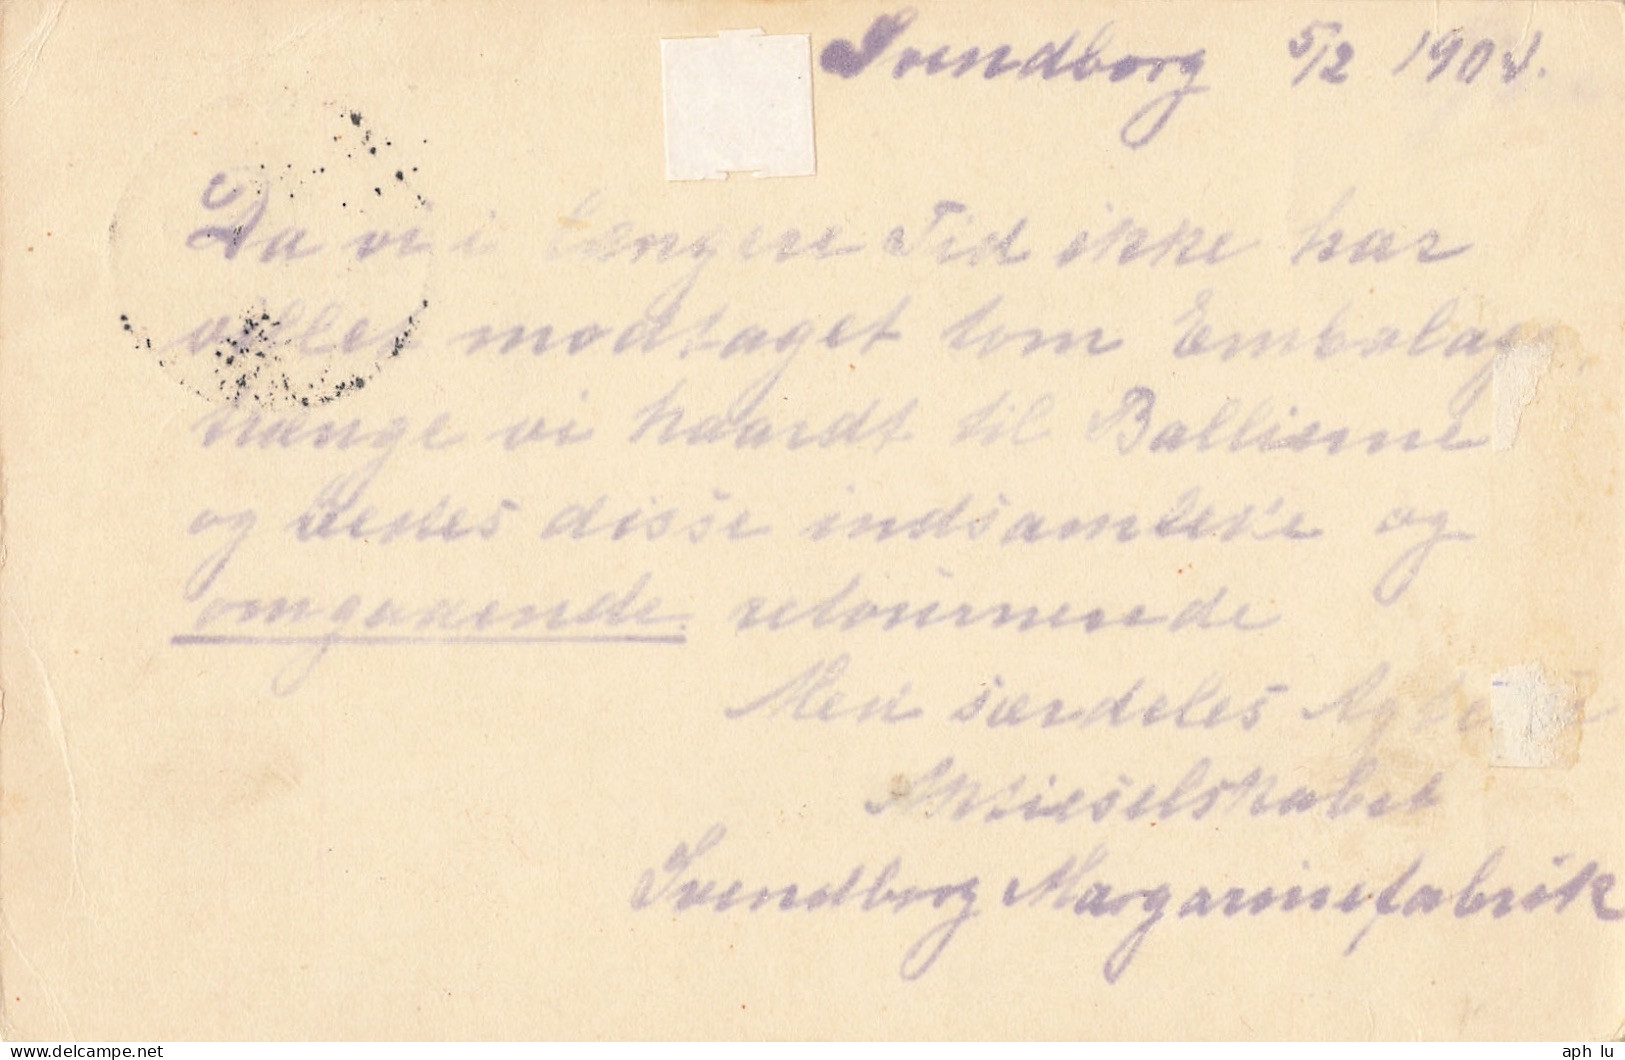 Svendborg 5/2 1904.
Da vi i længere Tid ikke har
modtaget tom Emballage
trænge vi haardt til Ballierne
og bedes disse indsamlede og
omgaaende retournerede
Med særdeles Agtelse
Aktieselskabet
Svendborg Margarinefabrik
aph lu